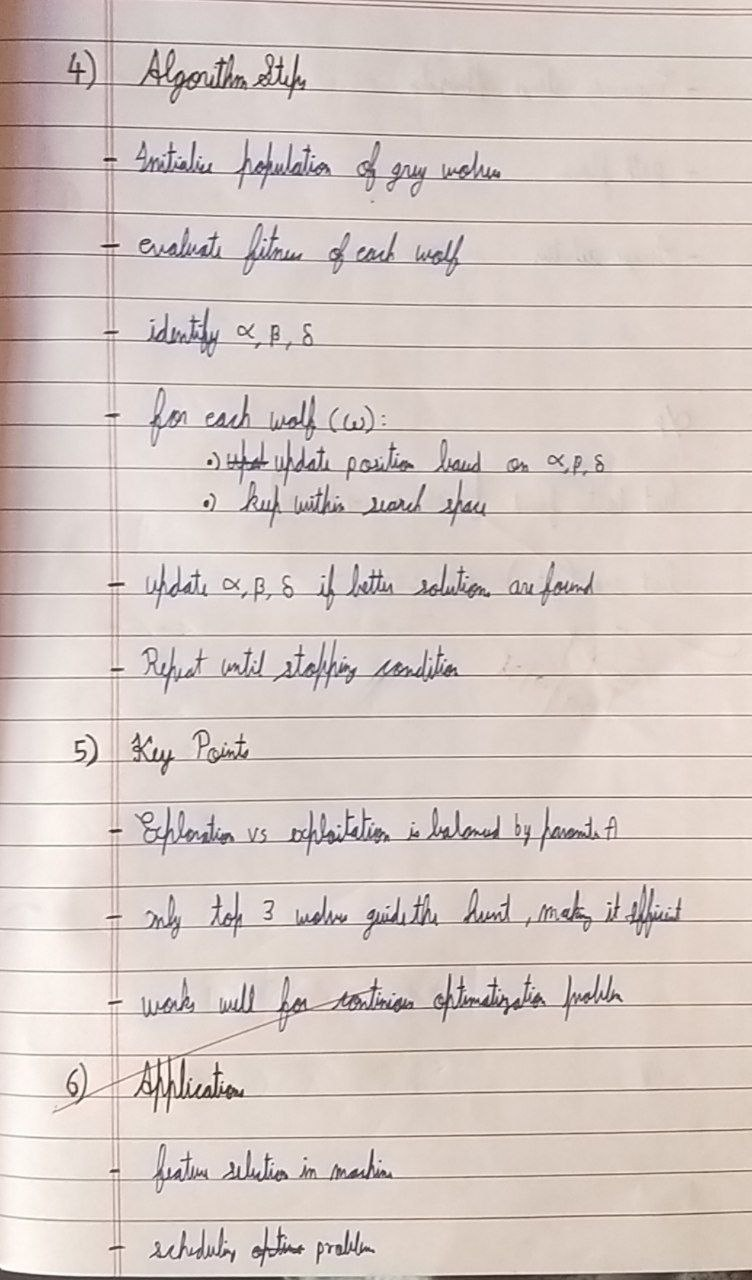 4) Algorithm Steps
- Initialise population of grey wolves
- evaluate fitness of each wolf
- identify α, β, δ
- for each wolf (ω):
•) update position based on α, β, δ
•) keep within search space
- update α, β, δ if better solutions are found
- Repeat until stopping condition
5) Key Points
- Exploration vs exploitation is balanced by A
- only top 3 wolves guide the hunt, making it efficient
- works well for continious optimatization problem
6) Applications
- feature selection in machine
- scheduling problem